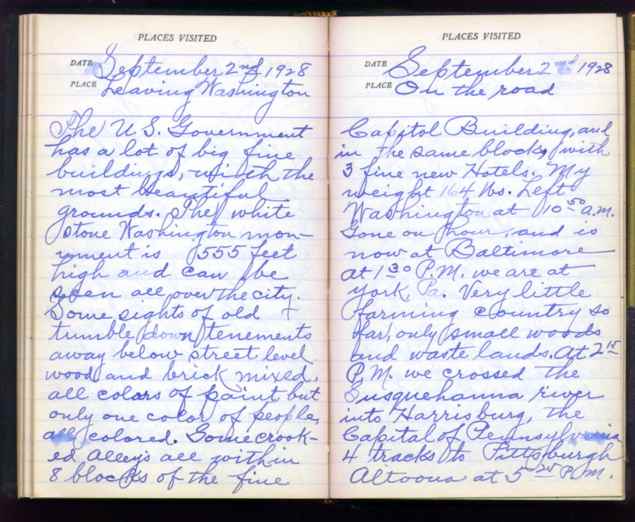 PLACES VISITED
DATE September 2nd 1928
PLACE Leaving Washington
The U S. Government
has a lot of big fine
buildings, with the
most beautiful
grounds. The white
stone Washington mon-
ument is 555 feet
high and can be
seen all over the city.
Some sights of old &
tumble down tenements
away below street level
wood and brick mixed,
all colors of paint but
only one color of people,
all colored. Some crook-
ed alley's all within
8 blocks of the fine
PLACES VISITED
DATE September 2nd 1928
PLACE On the road
Capitol Building, and
in the same blocks with
3 fine new Hotels. My
weight 164 lbs. Left
Washington at 10 50 a.m.
Gone on hour, and is
now at Baltimore
at 1 30 P.M. we are at
York, Pa. Very little
farming country so
far, only small woods
and waste lands. At 2 15
P.M. we crossed the
Susquehanna river
into Harrisburg, the
Capital of Pennsylvania
4 tracks to Pittsburgh
Altoona at 5 25 P.M.